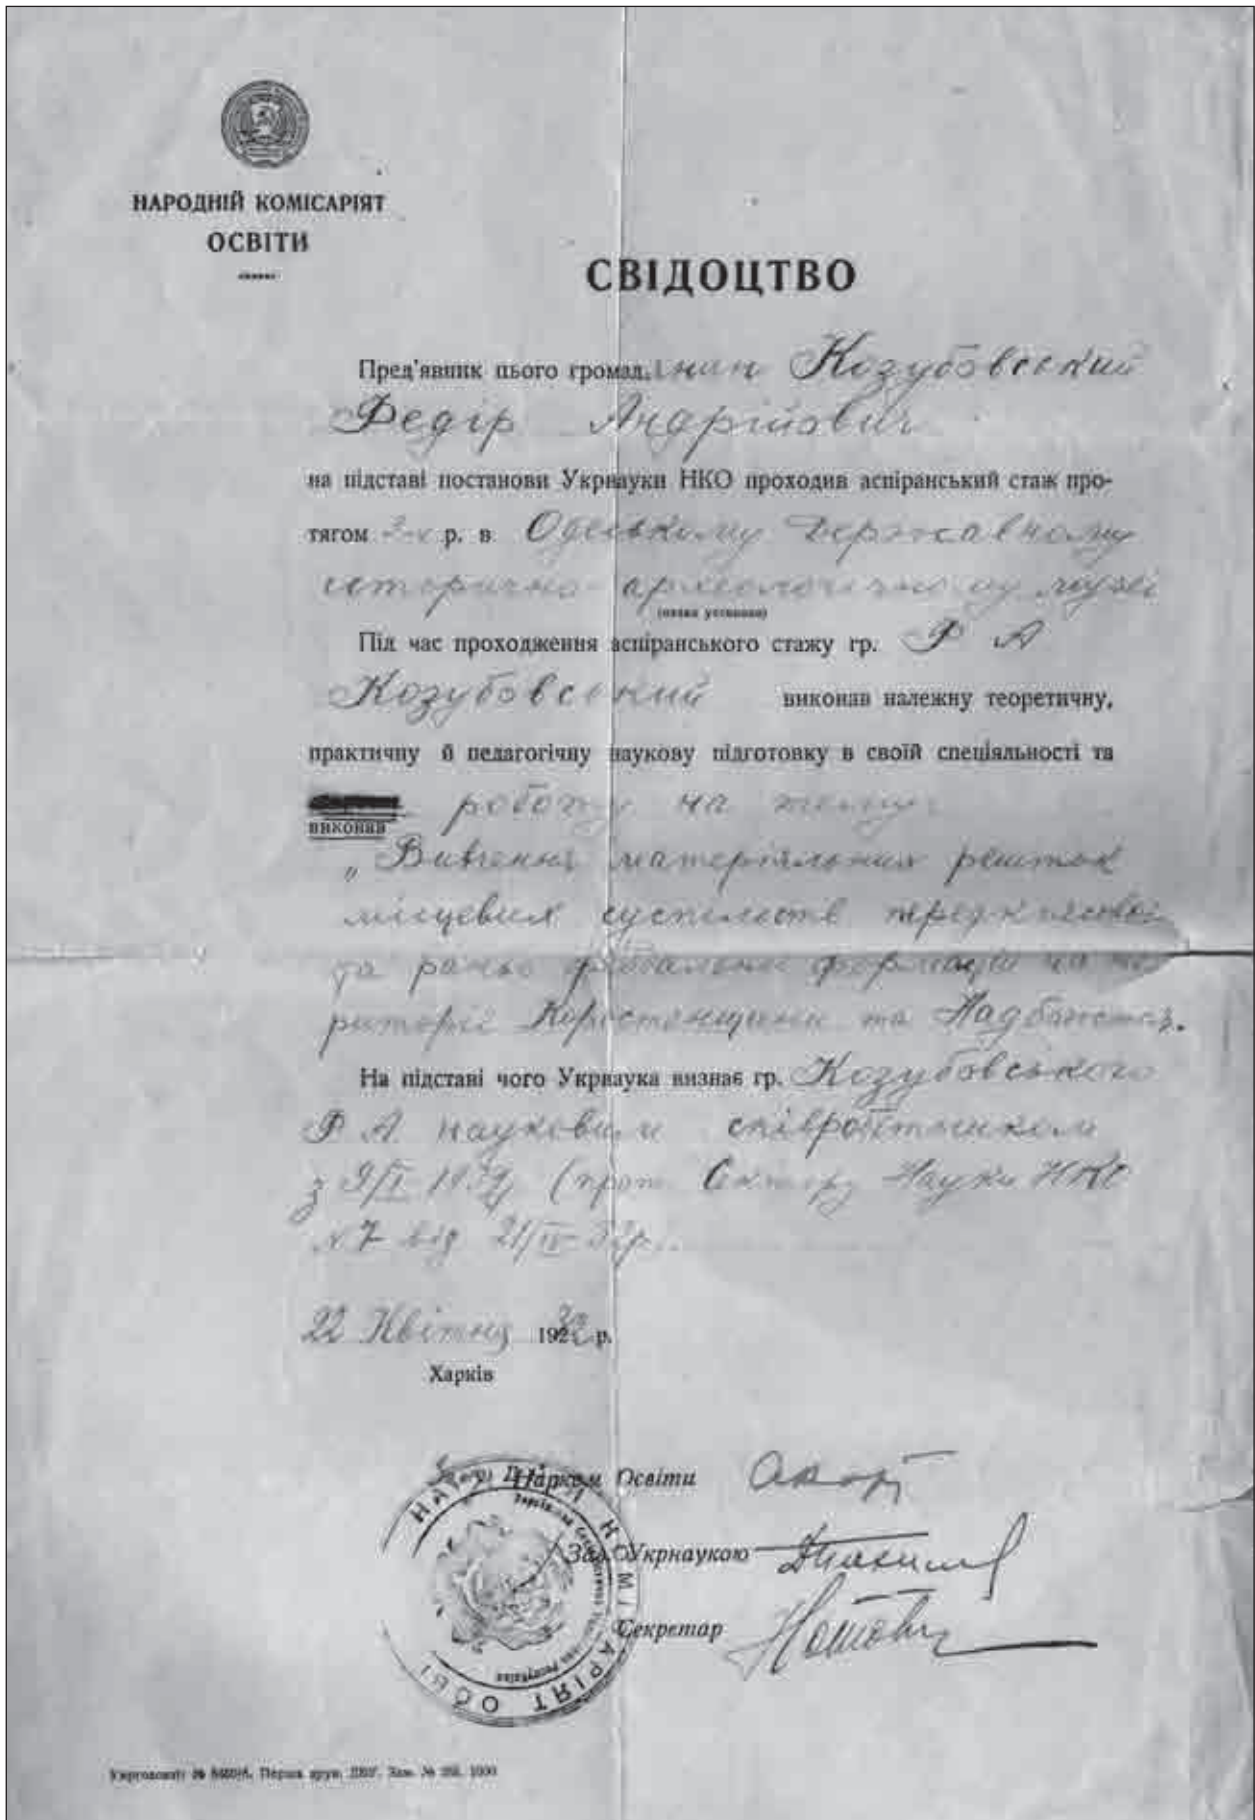 НАРОДНІЙ КОМІСАРІЯТ
ОСВІТИ
СВІДОЦТВО
Пред'явник цього громад. Козубовський
Федір Андрійович
на підставі постанови Укрнауки НКО проходив аспіранський стаж про-
тягом 3-х р. в Одеському Державному
исторично-археологичному музеї
(назва установи)
Під час проходження аспіранського стажу гр. Ф А
Козубовський виконав належну теоретичну,
практичну й педагогічну наукову підготовку в своїй спеціяльності та
виконав роботу на тему:
„Вивчення матеріяльних решток
місцевих суспільств
та раньо феодальної формацій на те-
риторії Коростенщини та
На підставі чого Укрнаука визнає гр. Козубовського
Ф А науковим співробітником
з (прот. Сектору Науки НКО
№7 від 21/IV
22 Квітня 192 р.
Харків
Нарком Освіти
Зав. Укрнаукою
Секретар
НАРОДНІЙ КОМІСАРІЯТ ОСВІ